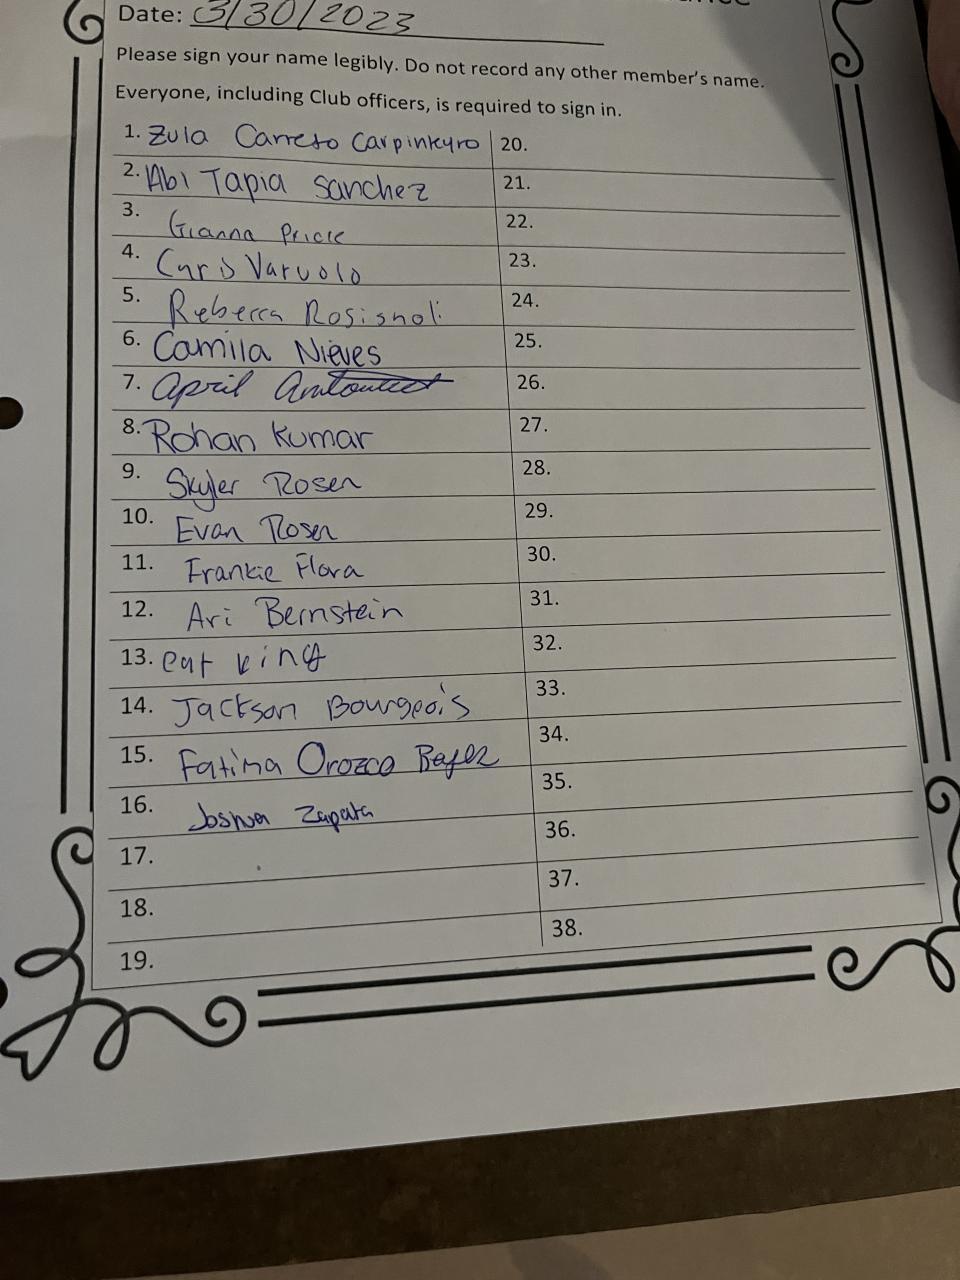 Date: 3/30/2023
Please sign your name legibly. Do not record any other member's name.
Everyone, including Club officers, is required to sign in.
1. Zula Carreto Carpinteyro
2. Abi Tapia Sanchez
3. Gianna Pricie
4. Chris Varuolo
5. Rebecca Rosignoli
6. Camila Nieves
7. April
8. Rohan Kumar
9. Skyler Rosen
10. Evan Rosen
11. Frankie Flora
12. Ari Bernstein
13. eat king
14. Jackson Bourgeois
15. Fatima Orozco
16. Joshua Zapata
17.
18.
19.
20.
21.
22.
23.
24.
25.
26.
27.
28.
29.
30.
31.
32.
33.
34.
35.
36.
37.
38.